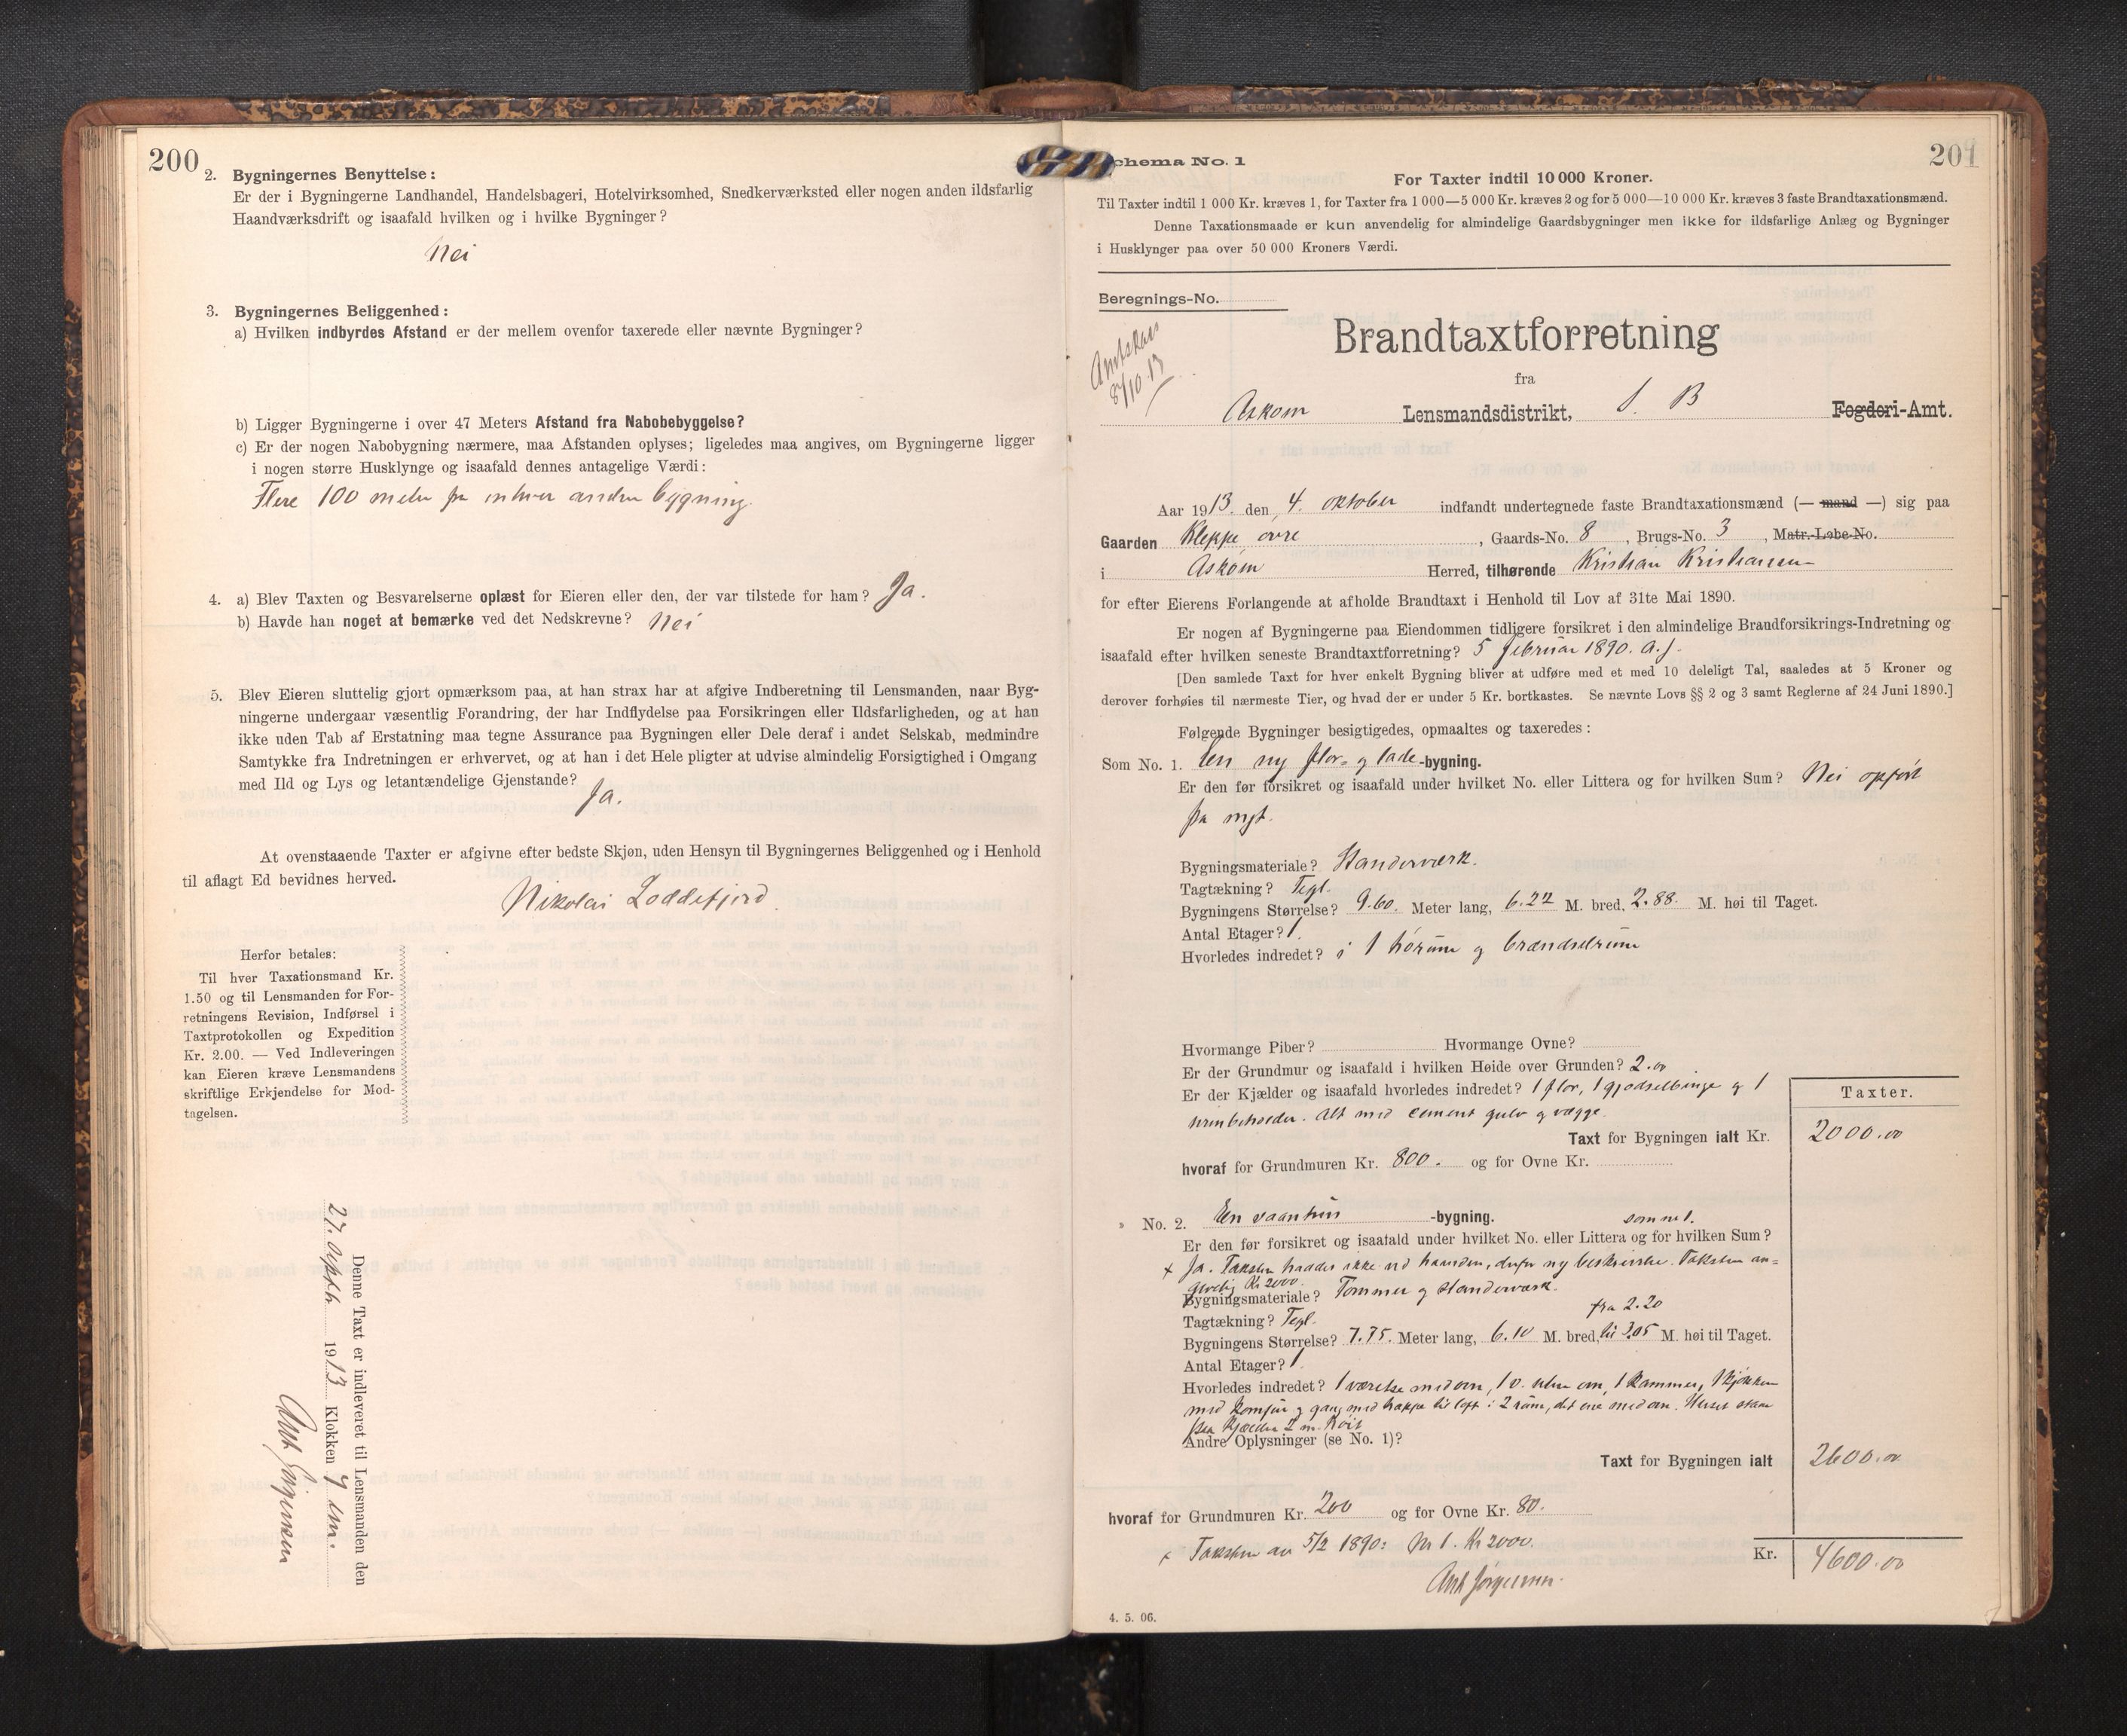 200
2. Bygningernes Benyttelse:
Er der i Bygningerne Landhandel, Handelsbageri, Hotelvirksomhed, Snedkerværksted eller nogen anden ildsfarlig
Haandværksdrift og isaafald hvilken og i hvilke Bygninger?
Nei
3. Bygningernes Beliggenhed:
a) Hvilken indbyrdes Afstand er der mellem ovenfor taxerede eller nævnte Bygninger?
b) Ligger Bygningerne i over 47 Meters Afstand fra Nabobebyggelse?
c) Er der nogen Nabobygning nærmere, maa Afstanden oplyses; ligeledes maa angives, om Bygningerne ligger
i nogen større Husklynge og isaafald dennes antagelige Værdi:
Flere 100 meter fra enhver anden bygning.
4. a) Blev Taxten og Besvarelserne oplæst for Eieren eller den, der var tilstede for ham? Ja.
b) Havde han noget at bemærke ved det Nedskrevne? Nei
5. Blev Eieren sluttelig gjort opmærksom paa, at han strax har at afgive Indberetning til Lensmanden, naar Byg-
ningerne undergaar væsentlig Forandring, der har Indflydelse paa Forsikringen eller Ildsfarligheden, og at han
ikke uden Tab af Erstatning maa tegne Assurance paa Bygningen eller Dele deraf i andet Selskab, medmindre
Samtykke fra Indretningen er erhvervet, og at han i det Hele pligter at udvise almindelig Forsigtighed i Omgang
med Ild og Lys og letantændelige Gjenstande?
Ja.
At ovenstaaende Taxter er afgivne efter bedste Skjøn, uden Hensyn til Bygningernes Beliggenhed og i Henhold
til aflagt Ed bevidnes herved.
Nikolai Loddefjord.
Herfor betales:
Til hver Taxationsmand Kr.
1.50 og til Lensmanden for For-
retningens Revision, Indførsel i
Taxtprotokollen og Expedition
Kr. 2.00. — Ved Indleveringen
kan Eieren kræve Lensmandens
skriftlige Erkjendelse for Mod-
tagelsen.
Denne Taxt er indleveret til Lensmanden den
27. 1913 Klokken 7 em.
Ant Jørgensen
Schema No. 1
201
For Taxter indtil 10 000 Kroner.
Til Taxter indtil 1 000 Kr. kræves 1, for Taxter fra 1 000—5 000 Kr. kræves 2 og for 5 000—10 000 Kr. kræves 3 faste Brandtaxationsmænd.
Denne Taxationsmaade er kun anvendelig for almindelige Gaardsbygninger men ikke for ildsfarlige Anlæg og Bygninger
i Husklynger paa over 50 000 Kroners Værdi.
Beregnings-No.
8/10.13
Brandtaxtforretning
fra
Askøm Lensmandsdistrikt, S. B Fogderi-Amt.
Aar 1913. den 4. oktober indfandt undertegnede faste Brandtaxationsmænd (— mand —) sig paa
Gaarden Kleppe øvre, Gaards-No. 8, Brugs-No. 3, Matr.-Løbe-No.
i Askøm Herred, tilhørende Kristian Kristiansen
for efter Eierens Forlangende at afholde Brandtaxt i Henhold til Lov af 31te Mai 1890.
Er nogen af Bygningerne paa Eiendommen tidligere forsikret i den almindelige Brandforsikrings-Indretning og
isaafald efter hvilken seneste Brandtaxtforretning? 5 februar 1890. A. J.
[Den samlede Taxt for hver enkelt Bygning bliver at udføre med et med 10 deleligt Tal, saaledes at 5 Kroner og
derover forhøies til nærmeste Tier, og hvad der er under 5 Kr. bortkastes. Se nævnte Lovs §§ 2 og 3 samt Reglerne af 24 Juni 1890.]
Følgende Bygninger besigtigedes, opmaaltes og taxeredes:
Som No. 1. En ny flor- og lade-bygning.
Er den før forsikret og isaafald under hvilket No. eller Littera og for hvilken Sum? Nei opført
fra nyt.
Bygningsmateriale? Standerværk.
Tagtækning? Tegl.
Bygningens Størrelse? 9.60. Meter lang, 6.22 M. bred, 2.88. M. høi til Taget.
Antal Etager? 1.
Hvorledes indredet? i 1 hørum og brændselrum
Hvormange Piber? Hvormange Ovne?
Er der Grundmur og isaafald i hvilken Høide over Grunden? 2.00
Er der Kjælder og isaafald hvorledes indredet? 1 flor, 1 gjødselbinge og 1
urinbeholder. Alt med cement gulv og vægge.
Taxter.
Taxt for Bygningen ialt Kr. 2000.00
hvoraf for Grundmuren Kr. 800. og for Ovne Kr.
» No. 2. En vaanhus-bygning. som nr 1.
Er den før forsikret og isaafald under hvilket No. eller Littera og for hvilken Sum?
x Ja. Taksten hadde ikke ved haanden, derfor ny beskrivelse. Taksten an=
givelig Kr 2000.
Bygningsmateriale? Tømmer og standerværk.
Tagtækning? Tegl. fra 2.20
Bygningens Størrelse? 7.75. Meter lang, 6.10 M. bred, til 3.05 M. høi til Taget.
Antal Etager? 1.
Hvorledes indredet? 1 værelse med ovn, 1 v. uten ovn, 1 kammer, 1 kjøkken
med komfur og gang med trappe til loft i 2 rum, det ene med ovn. Huset staar
paa kjælder 2 m. høit
Andre Oplysninger (se No. 1)?
Taxt for Bygningen ialt 2600.00
hvoraf for Grundmuren Kr. 200 og for Ovne Kr. 80.
x Taksten av 5/2 1890: Nr 1. Kr 2000.
Ant Jørgensen.
Kr. 4600.00
4. 5. 06.